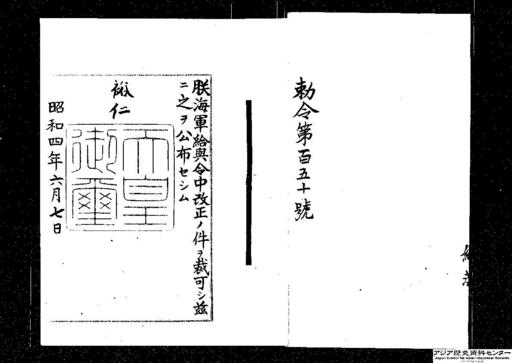 勅令第百五十號
朕海軍給與令中改正ノ件ヲ裁可シ茲
ニ之ヲ公布セシム
裕仁
天皇
御璽
昭和四年六月七日
アジア歴史資料センター
Japan Center for Asian Historical Records